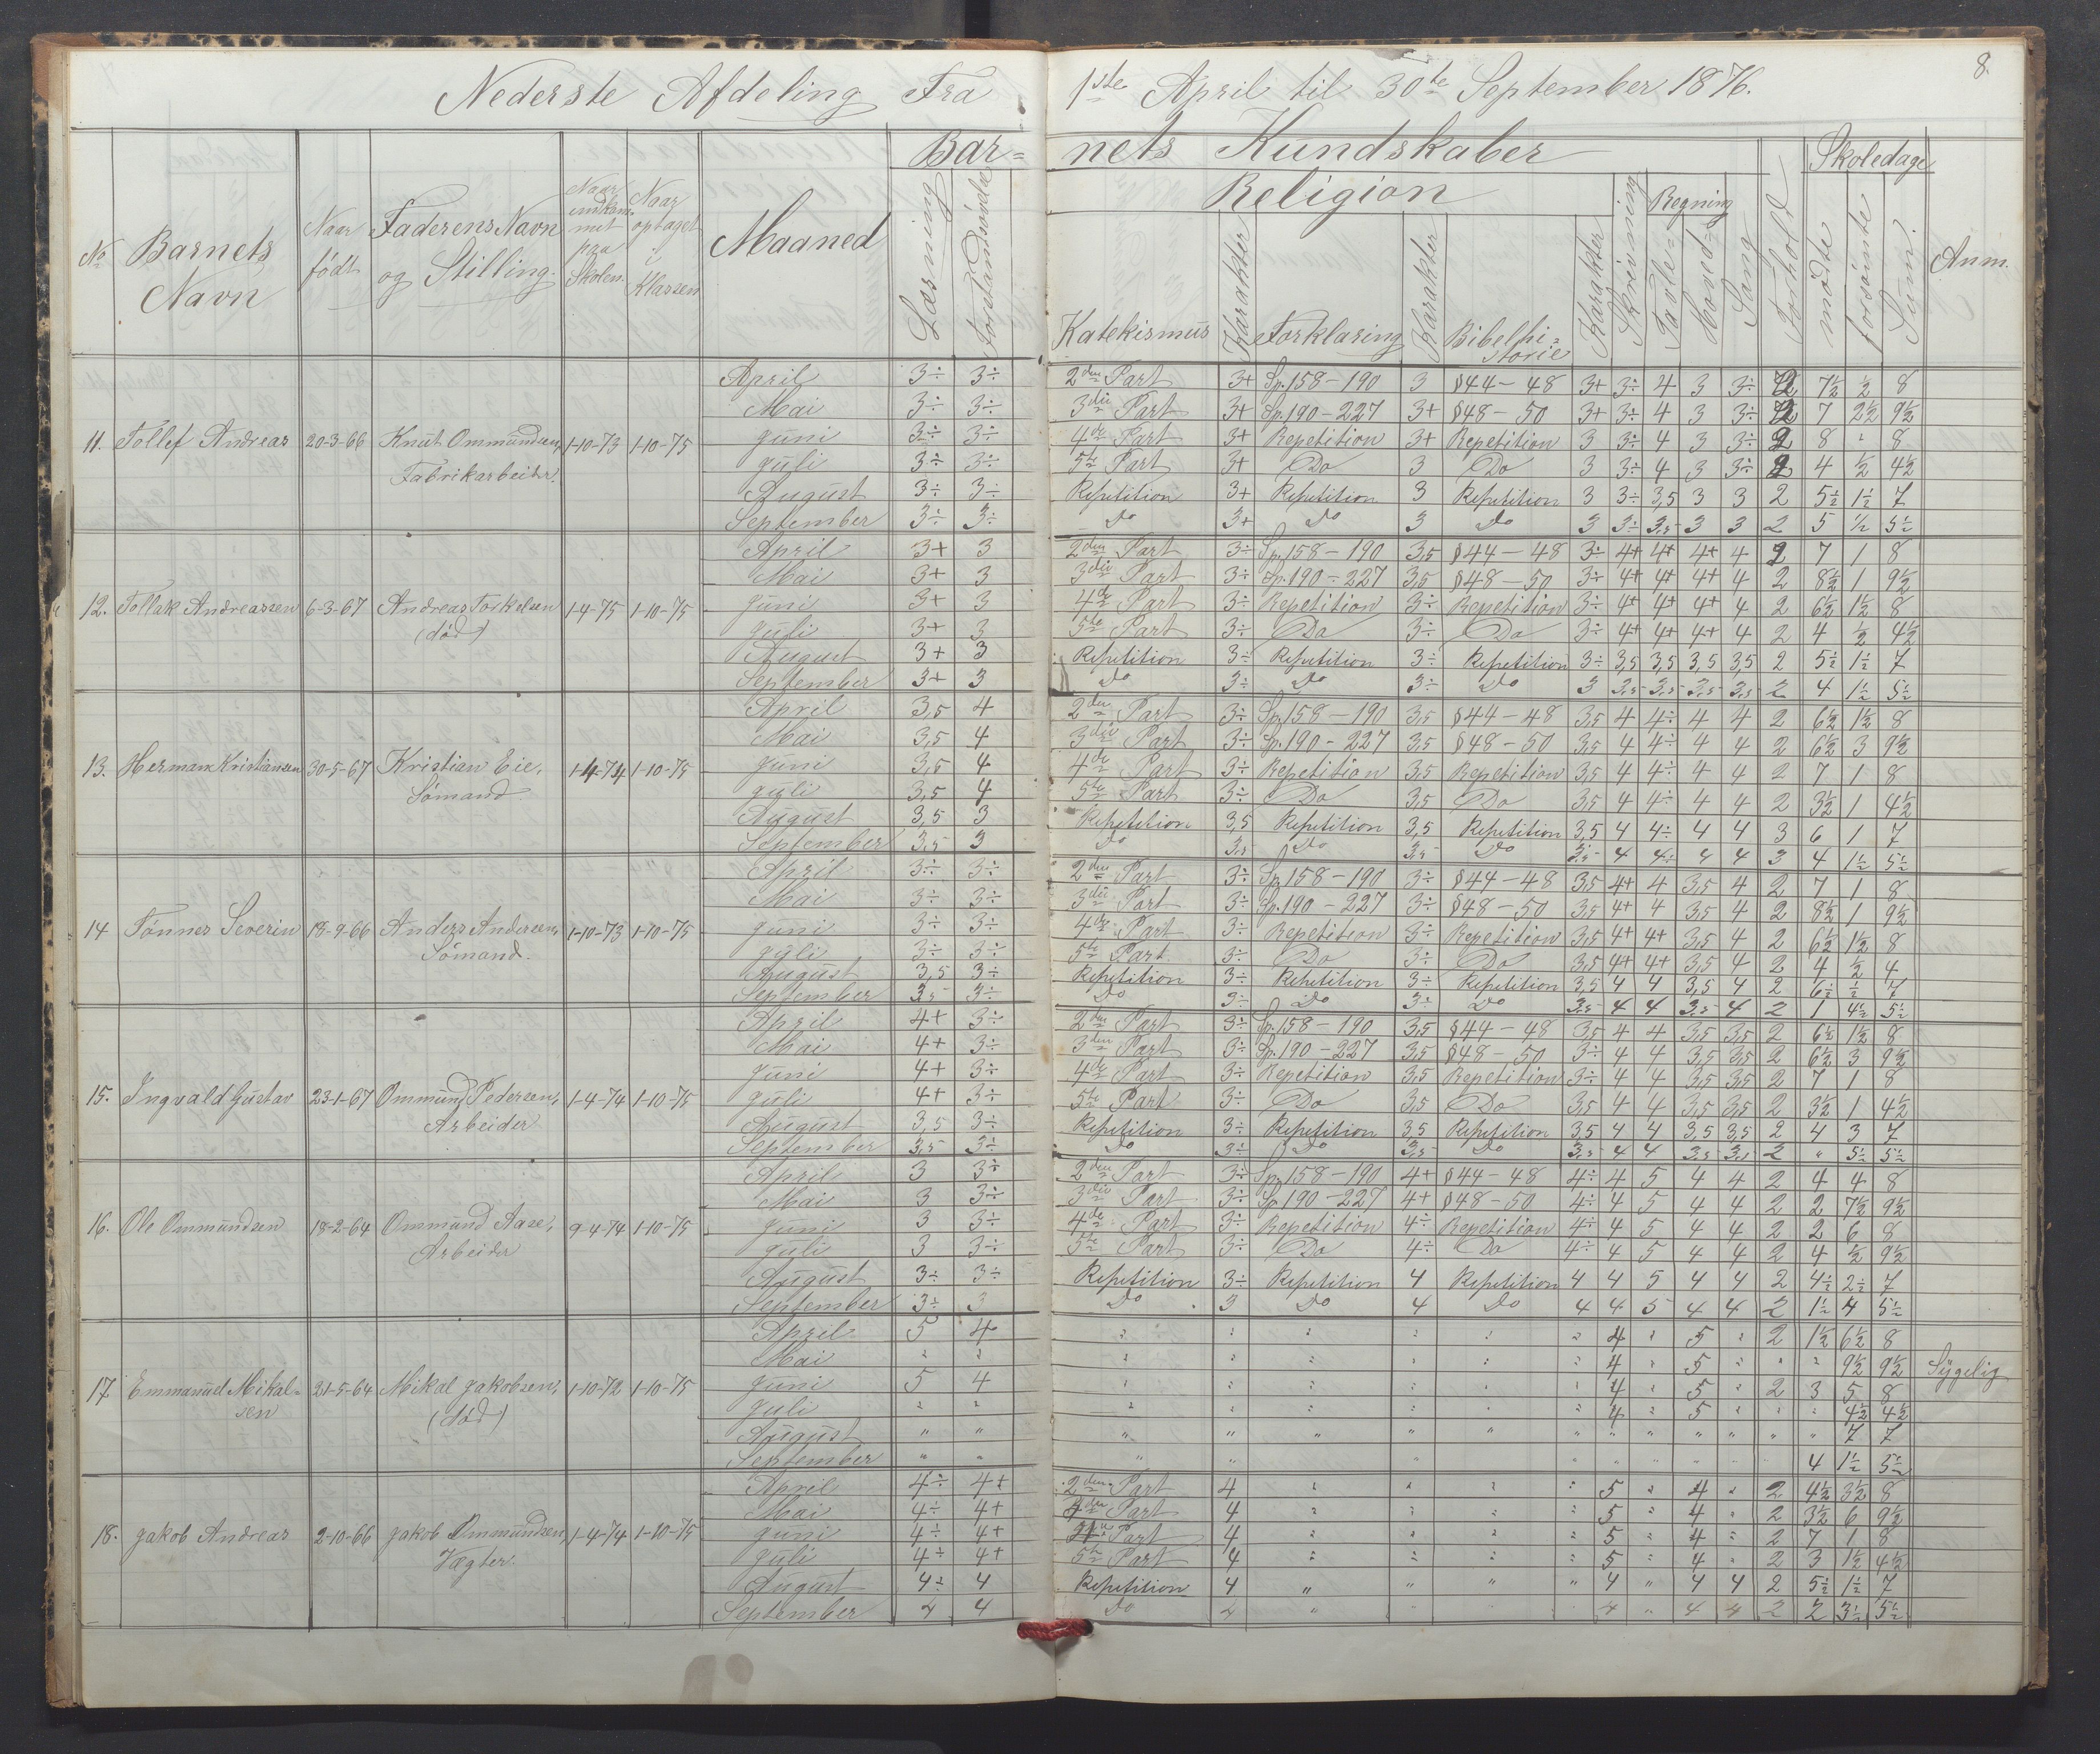 Nederste Afdeling Fra 1ste April til 30te September 1876. 8.
Barnets Kundskaber Skoledage
Religion Regning
No Barnets Navn Naar født Faderens Navn og Stilling. Naar indkommet paa Skolen. Naar optaget i Klassen Maaned Læsning Forstandsøvelse Katekismus Karakter Forklaring Karakter Bibelhistorie Karakter Skrivning Tavle- Hoved- Sang Forhold mødte forsømte Sum. Anm.
April 3÷ 3÷ 2den Part 3+ Sp. 158-190 3 §44-48 3+ 3÷ 4 3 3÷ 2 7½ ½ 8
Mai 3÷ 3÷ 3die Part 3+ Sp. 190-227 3+ §48-50 3+ 3÷ 4 3 3÷ 2 7 2½ 9½
11. Tollef Andreas 20-3-66 Knut Ommundsen, 1-10-73 1-10-75 Juni 3÷ 3÷ 4de Part 3+ Repetition 3+ Repetition 3 3÷ 4 3 3÷ 2 8 " 8
Fabrikarbeider. Juli 3÷ 3÷ 5te Part 3+ Do 3 Do 3 3÷ 4 3 3÷ 2 4 ½ 4½
August 3÷ 3÷ Repetition 3+ Repetition 3 Repetition 3 3÷ 3,5 3 3 2 5½ 1½ 7
September 3÷ 3÷ Do 3+ Do 3 Do 3 3÷ 3,5 3 3 2 5 ½ 5½
April 3+ 3 2den Part 3÷ Sp. 158-190 3,5 §44-48 3÷ 4+ 4+ 4+ 4 2 7 1 8
Mai 3+ 3 3die Part 3÷ Sp. 190-227 3,5 §48-50 3÷ 4+ 4+ 4+ 4 2 8½ 1 9½
12. Tollak Andreassen 6-3-67 Andreas Torkelsen 1-4-75 1-10-75 Juni 3+ 3 4de Part 3÷ Repetition 3÷ Repetition 3÷ 4+ 4+ 4+ 4 2 6½ 1½ 8
(død) Juli 3+ 3 5te Part 3÷ Do 3÷ Do 3÷ 4+ 4+ 4+ 4 2 4 ½ 4½
August 3+ 3 Repetition 3÷ Repetition 3÷ Repetition 3÷ 3,5 3,5 3,5 3,5 2 5½ 1½ 7
September 3+ 3 Do 3÷ Do 3÷ Do 3 3,5 3,5 3,5 3,5 2 4 1½ 5½
April 3,5 4 2den Part 3÷ Sp. 158-190 3,5 §44-48 3,5 4 4÷ 4 4 2 6½ 1½ 8
Mai 3,5 4 3die Part 3÷ Sp. 190-227 3,5 §48-50 3,5 4 4÷ 4 4 2 6½ 3 9½
13. Herman Kristiansen 30-5-67 Kristian Eie, 1-4-74 1-10-75 Juni 3,5 4 4de Part 3÷ Repetition 3,5 Repetition 3,5 4 4÷ 4 4 2 7 1 8
Sømand. Juli 3,5 4 5te Part 3÷ Do 3,5 Do 3,5 4 4÷ 4 4 2 3½ 1 4½
August 3,5 3 Repetition 3,5 Repetition 3,5 Repetition 3,5 4 4÷ 4 4 3 6 1 7
September 3,5 3 Do 3,5 Do 3,5 Do 3,5 4 4÷ 4 4 3 4 1½ 5½
April 3÷ 3÷ 2den Part 3÷ Sp. 158-190 3÷ §44-48 3,5 4+ 4 3,5 4 2 7 1 8
Mai 3÷ 3÷ 3die Part 3÷ Sp. 190-227 3÷ §48-50 3,5 4+ 4 3,5 4 2 8½ 1 9½
14 Tønnes Severin 18-9-66 Anders Andersen, 1-10-73 1-10-75 Juni 3÷ 3÷ 4de Part 3÷ Repetition 3÷ Repetition 3,5 4+ 4+ 3,5 4 2 6½ 1½ 8
Sømand. Juli 3÷ 3÷ 5te Part 3÷ Do 3÷ Do 3,5 4+ 4+ 3,5 4 2 4 ½ 4
August 3,5 3÷ Repetition 3÷ Repetition 3÷ Repetition 3,5 4 4 3,5 4 2 6½ ½ 7
September 3,5 3÷ Do 3÷ Do 3÷ Do 3,5 4 4 3,5 4 2 1 4½ 5½
April 4+ 3÷ 2den Part 3÷ Sp. 158-190 3,5 §44-48 3,5 4 4 3,5 3,5 2 6½ 1½ 8
Mai 4+ 3÷ 3den Part 3÷ Sp. 190-227 3,5 §48-50 3÷ 4 4 3,5 3,5 2 6½ 3 9½
15. Ingvald Gustav 23-1-67 Ommund Pedersen, 1-4-74 1-10-75 Juni 4+ 3÷ 4de Part 3÷ Repetition 3,5 Repetition 3÷ 4 4 3,5 3,5 2 7 1 8
Arbeider Juli 4+ 3÷ 5te Part 3÷ Do 3,5 Do 3,5 4 4 3,5 3,5 2 3½ 1 4½
August 3,5 3÷ Repetition 3÷ Repetition 3,5 Repetition 3,5 4 4 3,5 3,5 2 4 3 7
September 3,5 3÷ Do 3÷ Do 3,5 Do 3,5 4 4 3,5 3,5 2 " 5½ 5½
April 3 3÷ 2den Part 3÷ Sp. 158-190 4+ §44-48 4÷ 4 5 4 4 2 4 4 8
Mai 3 3÷ 3die Part 3÷ Sp. 190-227 4+ §48-50 4÷ 4 5 4 4 2 2 7½ 9½
16. Ole Ommundsen 18-2-64 Ommund Aase, 9-4-74 1-10-75 Juni 3 3÷ 4de Part 3÷ Repetition 4÷ Repetition 4÷ 4 5 4 4 2 2 6 8
Arbeider Juli 3 3÷ 5te Part 3÷ Do 4÷ Do 4÷ 4 5 4 4 2 4 ½ 9½
August 3÷ 3÷ Repetition 3÷ Repetition 4 Repetition 4 4 5 4 4 2 4½ 2½ 7
September 3÷ 3 Do 3 Do 4 Do 4 4 5 4 4 2 1½ 4 5½
April 5 4 " " " " " " 4 " 5 " 2 1½ 6½ 8
Mai " " " " " " " " 4 " 5 " " " 9½ 9½ Sygelig
17 Emmanuel Mikal- 21-5-64 Mikal Jakobsen, 1-10-72 1-10-75 Juni 5 4 " " " " " " 4 " 5 " 2 3 5 8
sen (død) Juli " " " " " " " " 4 " 5 " " " 4½ 4½
August " " " " " " " " " " " " " " 7 7
September " " " " " " " " " " " " " 4 1½ 5½
April 4÷ 4+ 2den Part 4 " " " " 5 " 4 " 2 4½ 3½ 8
Mai 4÷ 4+ Part 4 " " " " 5 " 4 " 2 3½ 6 9½
18. Jakob Andreas 2-10-66 Jakob Ommundsen, 1-4-74 1-10-75 Juni 4÷ 4+ Part 4 " " " " 5 " 4 " 2 7 1 8
Vægter. Juli 4÷ 4+ 5te Part 4 " " " " 5 " 4 " 2 3 1½ 4½
August 4÷ 4 Repetition 4 " " " " 4 " 4 4 2 5½ 1½ 7
September 4 4 Do 4 " " " " 4 " 4 4 2 2 3½ 5½